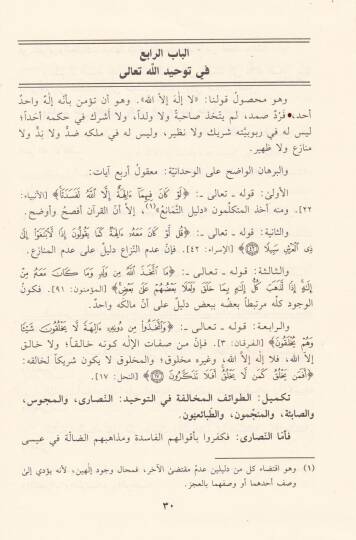 الباب الرابع
في توحيد الله تعالى
وهو محصولُ قولنا: «لا إلٰهَ إلاَّ الله». وهو أن تؤمن بأنّه إلٰهٌ واحدٌ
أحد، فَرْدٌ صمد، لم يتّخذ صاحبةً ولا ولداً، ولا أشرك في حكمه أحداً؛
ليس له في ربوبيّته شريك ولا نظير، وليس له في ملكه ضدٌّ ولا نِدٌّ ولا
منازع ولا ظهير.
والبرهان الواضح على الوحدانيّة: معقولُ أربع آيات:
الأولىٰ: قوله ـ تعالى ـ: ﴿لَوْ كَانَ فِيهِمَا آلِهَةٌ إِلَّا اللَّهُ لَفَسَدَتَا﴾ [الأنبياء:
٢٢]. ومنه أخذ المتكلّمون «دليل التّمانُع»(١)، إلاّ أنّ القرآن أفصحُ وأوضح.
والثانية: قوله ـ تعالى ـ: ﴿قُل لَّوْ كَانَ مَعَهُ آلِهَةٌ كَمَا يَقُولُونَ إِذًا لَّابْتَغَوْا إِلَىٰ
ذِي الْعَرْشِ سَبِيلًا (٤٢)﴾ [الإسراء: ٤٢]. فإنّ عدم النّزاع دليلٌ على عدم المنازع.
والثالثة: قوله ـ تعالى ـ: ﴿مَا اتَّخَذَ اللَّهُ مِن وَلَدٍ وَمَا كَانَ مَعَهُ مِنْ
إِلَٰهٍ إِذًا لَّذَهَبَ كُلُّ إِلَٰهٍ بِمَا خَلَقَ وَلَعَلَا بَعْضُهُمْ عَلَىٰ بَعْضٍ﴾ [المؤمنون: ٩١]. فكونُ
الوجود كلِّه مرتبطاً بعضُه ببعض دليلٌ على أنّ مالكَه واحدٌ.
والرابعة: قوله ـ تعالى ـ: ﴿وَاتَّخَذُوا مِن دُونِهِ آلِهَةً لَّا يَخْلُقُونَ شَيْئًا
وَهُمْ يُخْلَقُونَ﴾ [الفرقان: ٣]. فإنّ من صفات الإلٰه كونه خالقاً؛ ولا خالق
إلاّ الله، فلا إلٰه إلاّ الله، وغيره مخلوق؛ والمخلوق لا يكون شريكاً لخالقه:
﴿أَفَمَن يَخْلُقُ كَمَن لَّا يَخْلُقُ أَفَلَا تَذَكَّرُونَ (١٧)﴾ [النحل: ١٧].
تكميل: الطوائف المخالفة في التوحيد: النّصارى، والمجوس،
والصابئة، والمنجّمون، والطّبائعيّون.
فأمّا النّصارى: فكفروا بأقوالهم الفاسدة ومذاهبهم الضالّة في عيسى
(١) وهو اقتضاء كل من دليلين عدمَ مقتضىٰ الآخر، فمحال وجود إلٰهين، لأنه يؤدي إلىٰ
وصف أحدهما أو وصفهما بالعجز.
٣٠